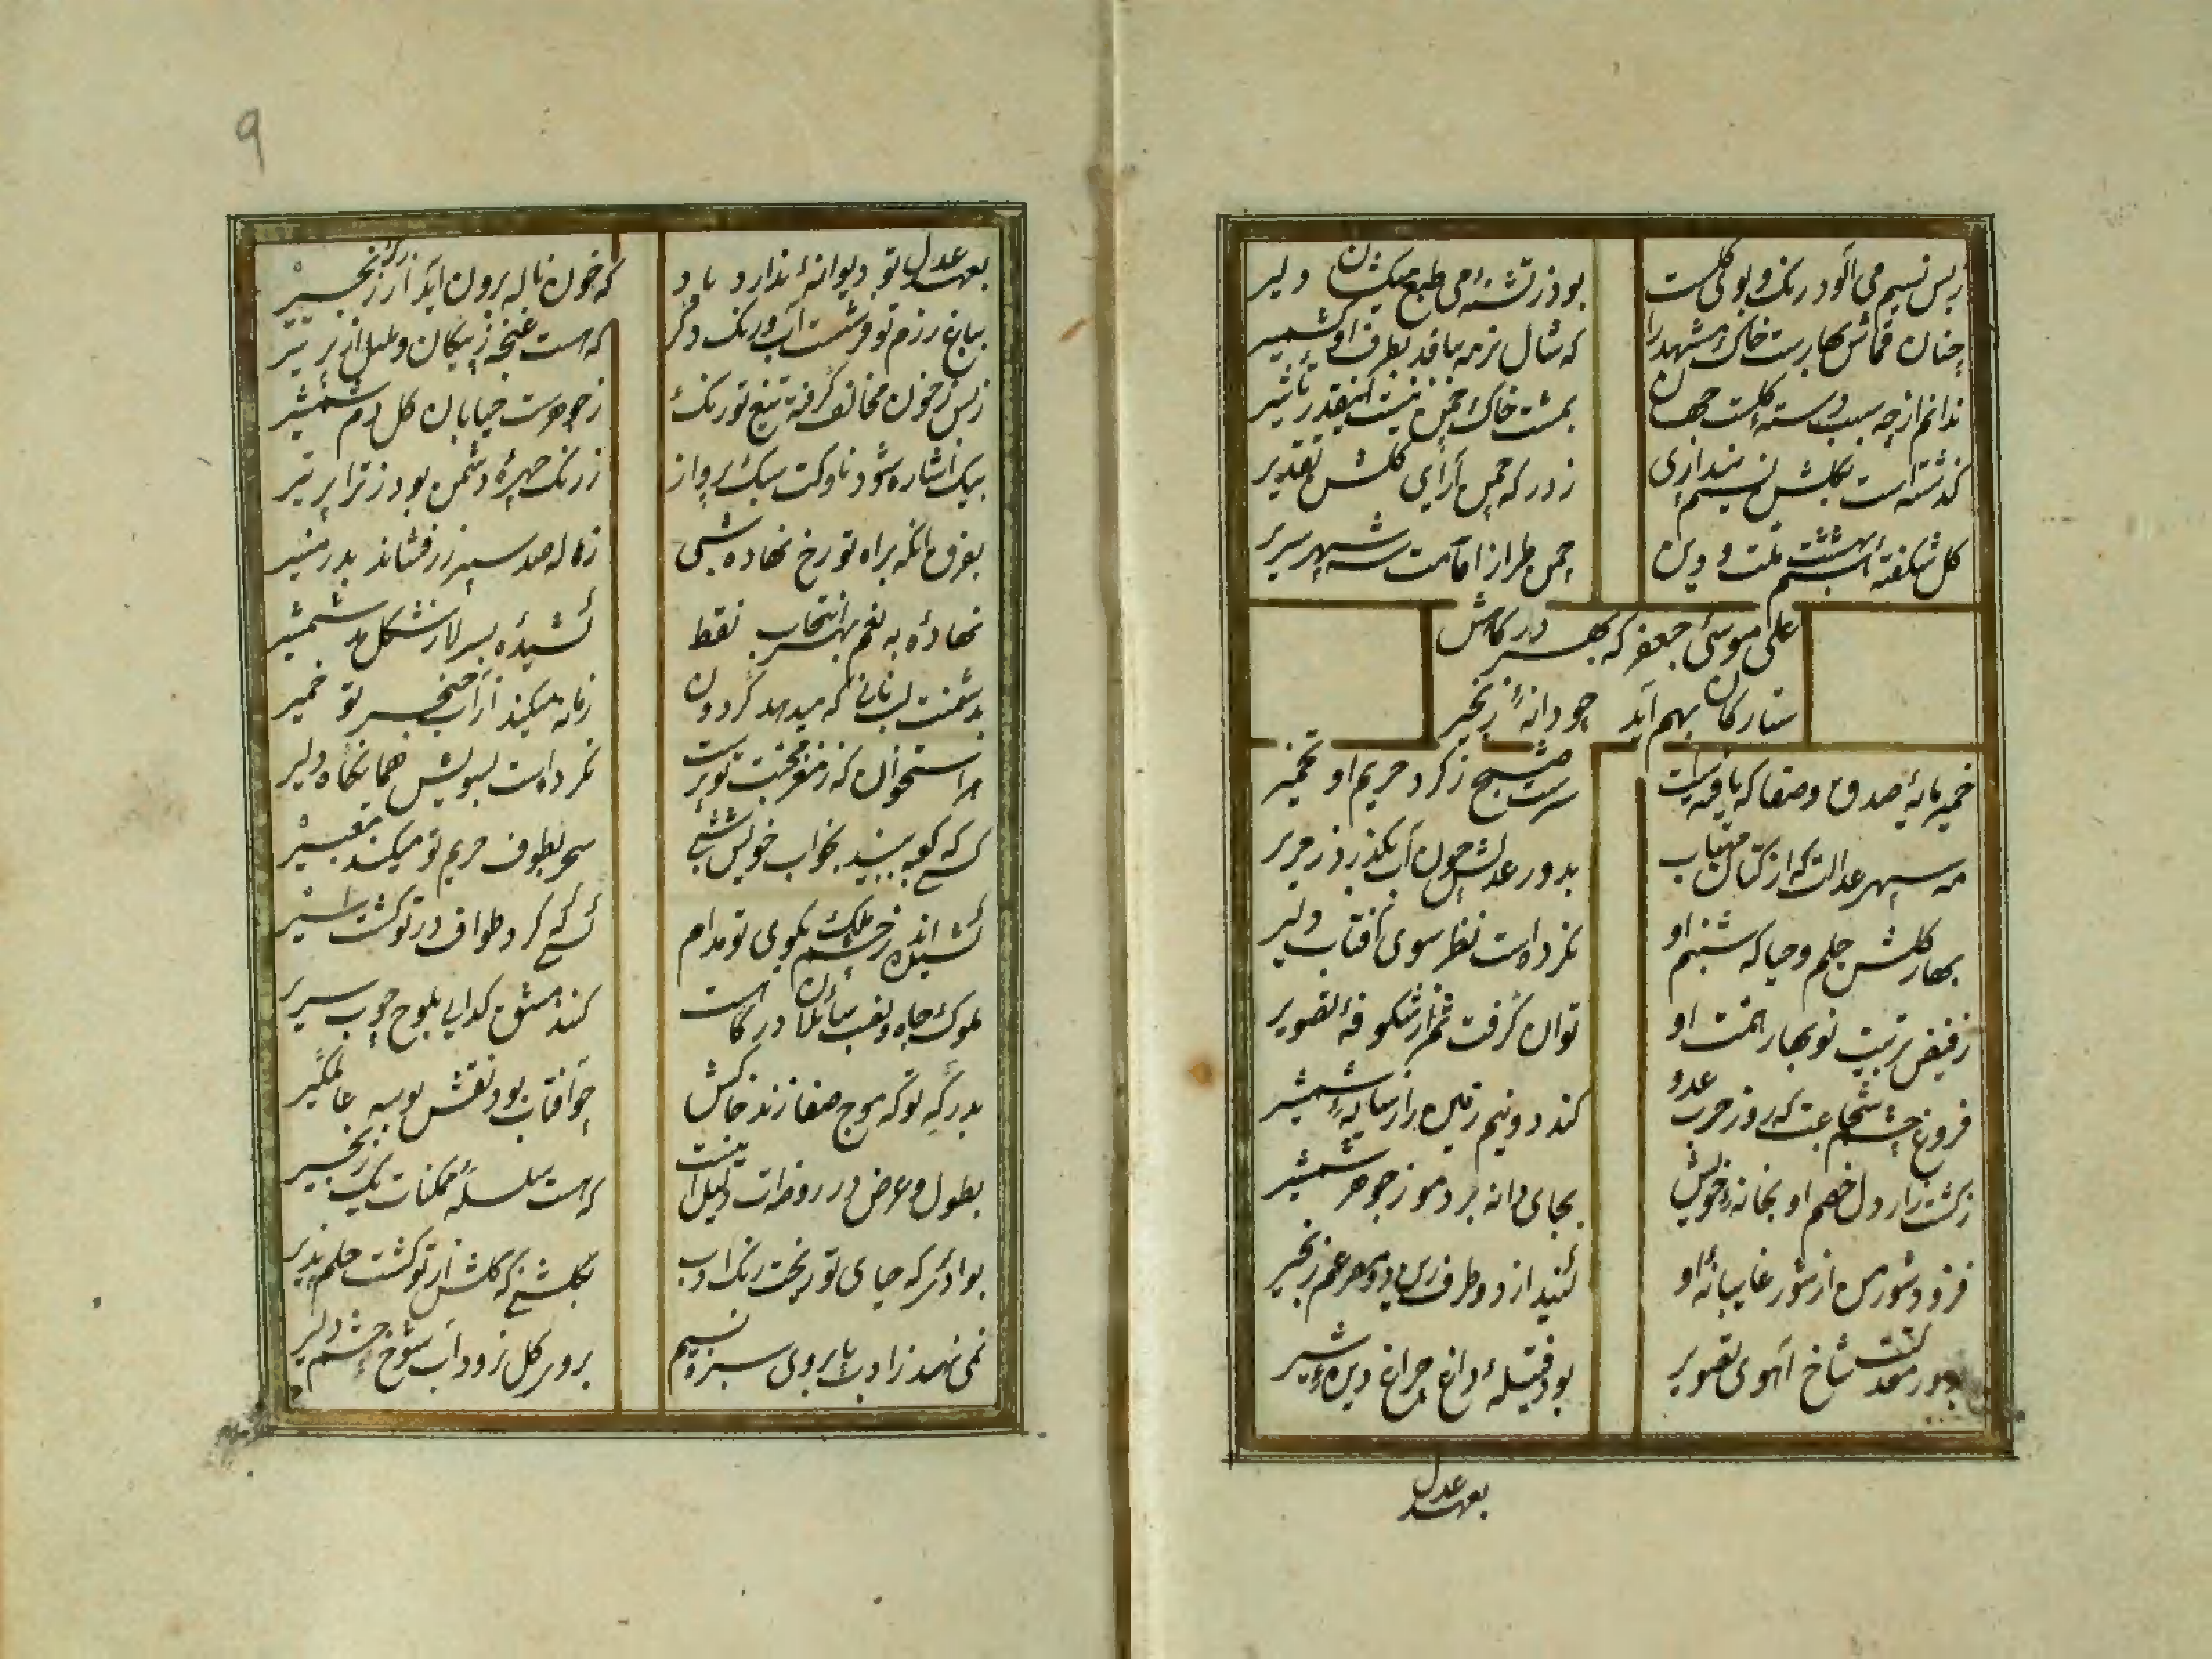 زبس نسیم می آلود رنگ و بوی گلست
بود ز تشنهٔ می طبع میکشان دلیر
چنان قماش بهارست خاک مشهد را
که شال ترمه بافد بطرف او کشمیر
ندانم از چه سبب دسته گلست جهان
بمشت خاک چمن نیست اینقدر تأثیر
گذشته است بگلشن نسیم پنداری
ز درگه چمن آرای گلشن تقدیر
گل شکفتهٔ هشتم بهشت ملت و دین
چمن طراز امامت شه سپهر سریر
علی موسی جعفر که بهر درگاهش
ستارگان بهم آید چو دانهٔ زنجیر
خمیرمایهٔ صدق و صفا که یافته است
سرشت صبح ز گرد حریم او تخمیر
مه سپهر عدالت که از کتان مهتاب
بدور عدلش چون آب بگذرد ز حریر
بهار گلشن حلم و حیا که شبنم او
نکرده است نظر سوی آفتاب دلیر
ز فیض تربیت نوبهار همت او
توان گرفت ثمر از شکوفهٔ تصویر
فروغ چشم شجاعت که روز حرب عدو
کند دو نیم زمین را ز سایهٔ شمشیر
ز کشتزار دل خصم او بخانهٔ خویش
بجای دانه برد مور جوهر شمشیر
فزود شورش من از شور غایبانه او
بدور معدلتت شاخ آهوی تصویر
بود فتیلهٔ داغ چراغ دیدهٔ شیر
بعهد عدل
۹
بعهد عدل تو دیوانهٔ ندارد یاد
که خون ناله برون آید از رگ زنجیر
بباغ رزم تو فرشست آب و رنگ دگر
که هست غنچه ز پیکان و بلبل از پر تیر
ز بس ز خون مخالف گرفته تیغ تو رنگ
ز جوهرست خیابان گل دم شمشیر
بیک اشاره شود ناوکت سبک پرواز
ز رنگ چهرهٔ دشمن بود ز ترا پر تیر
بفرق آنکه براه تو رخ نهاده شبی
ز هاله صد سپر زر فشاند بدر منیر
نهاده به رغم بهر انتخاب نقط
کشیده بر سر لا از شکل مد شمشیر
بدشمنت لب نانی که میدهد گردون
زمانه میکند از آب خنجر تو خمیر
هر استخوان که ز مغز محبت تو پرست
نکرده است بسویش هما نگاه دلیر
کسی که کعبه ببیند بخواب خویش شبی
سحر بطوف حریم تو میکند تعبیر
کشیده اند ز چشم ملک بکوی تو مدام
کسی که گرد طواف در تو گشت اسیر
ملوک جاه و لقب سائلان درگاهت
کنند مشق گدایی بلوح چوب سریر
بدرگه تو که موج صفا زند خاکش
چو آفتاب بود نقش بوسه عالمگیر
بطول و عرض در روضه ات دلیل اینست
که هست سلسله ممکنات یک زنجیر
بوادئی که حیای تو ریخت رنگ ادب
بگلشنی که گلش از تو گشت حلم پذیر
نمی نهد ز ادب پا بروی سبزه نسیم
بروی گل نرود آب شوخ چشم دلیر